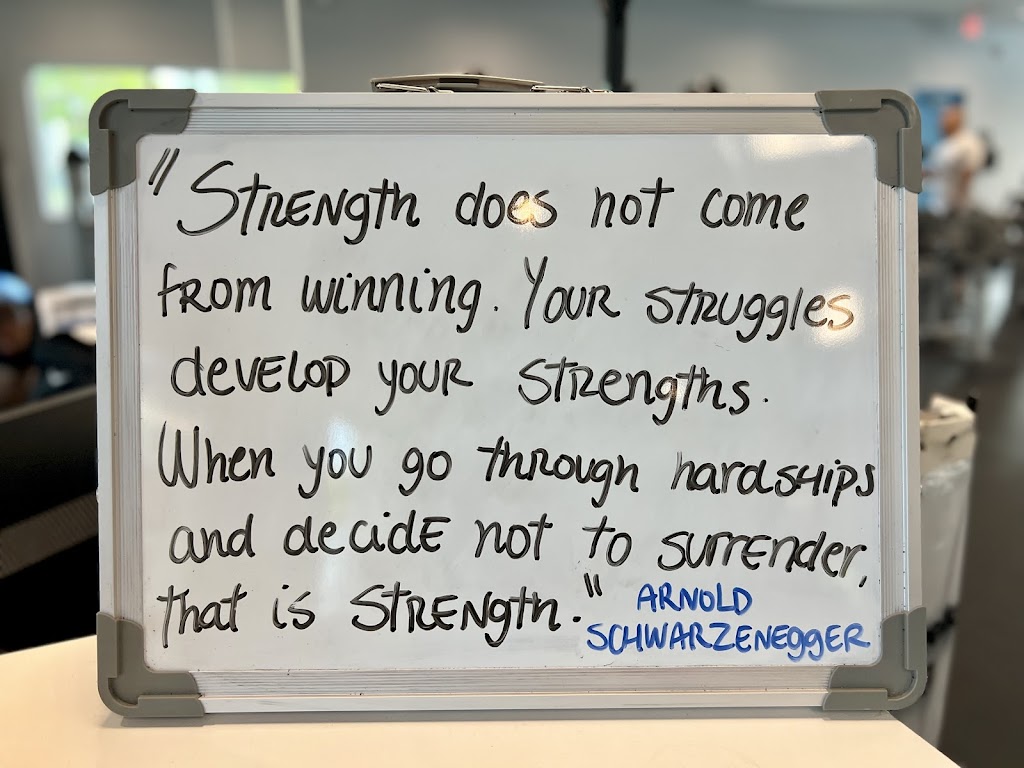 "Strength does not come
from winning. Your struggles
develop your strengths.
When you go through hardships
and decide not to surrender,
that is strength."
ARNOLD
SCHWARZENEGGER